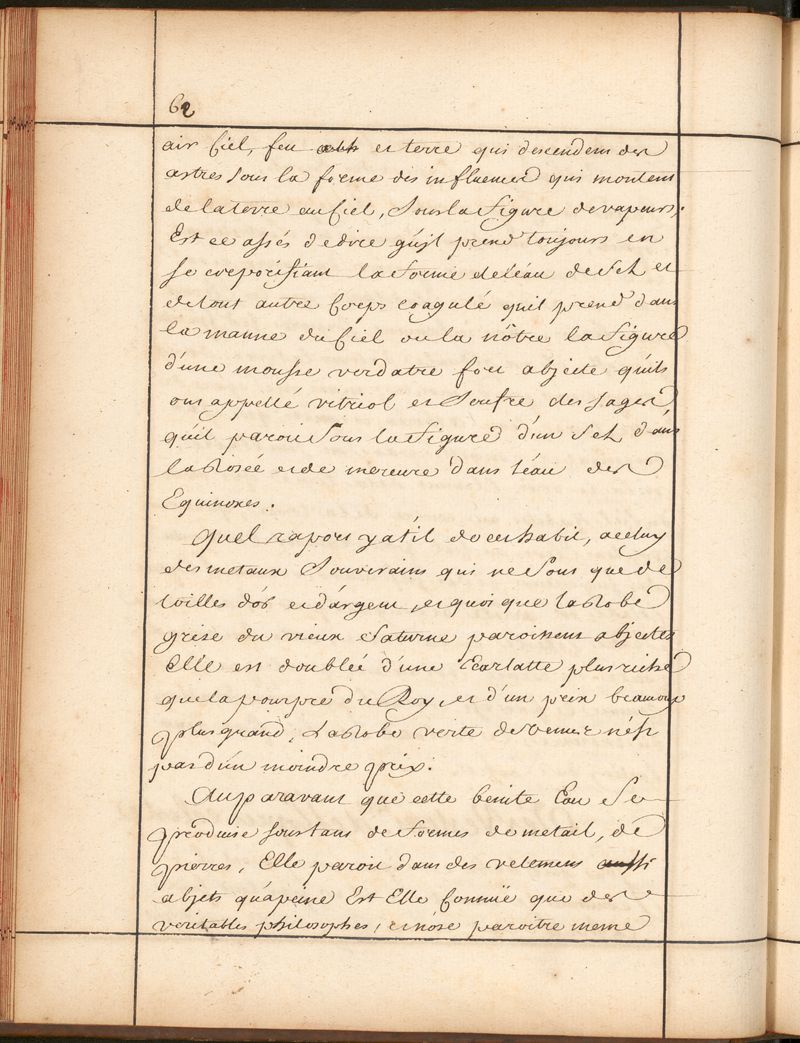 62
air Ciel, feu et terre qui descendent des
astres sous la forme des influences qui montent
de la terre au Ciel, Sous la Figure de vapeurs.
Est ce assés de dire qu'jl prend toujours en
se corporifiant la Forme de l'éau de Sel et
de tout autre Corps coagulé qu'il prend dans
la manne du Ciel ou la nôtre la Figure
d'une mousse verdatre fort abjecte qu'ils
ont appellé vitriol et Soufre des Sages
qu'il paroit Sous la Figure d'un Sel dans
la Rosée et de mercure dans l'éau des
Equinoxes.
Quel raport y at'il de cet habit, a celuy
des metaux Souverains qui ne Sont que de
toilles d'or et d'argent, et quoi que la Robe
grise du vieux Saturne paroissent abjectes
Elle est doubleé d'une Ecarlatte plus riche
que la pourpre du Roy, et d'un prix beaucoup
plus grand, La Robe verte de venus n'ést
pas d'ún moindre prix.
Auparavant que cette benite Eau Se
produise sous tant de Formes de metail, de
pierres, Elle paroit dans des vetemens aussi
abjets qu'apeine Est Elle Connuë que des
veritables philosophes, et n'óse paroitre meme